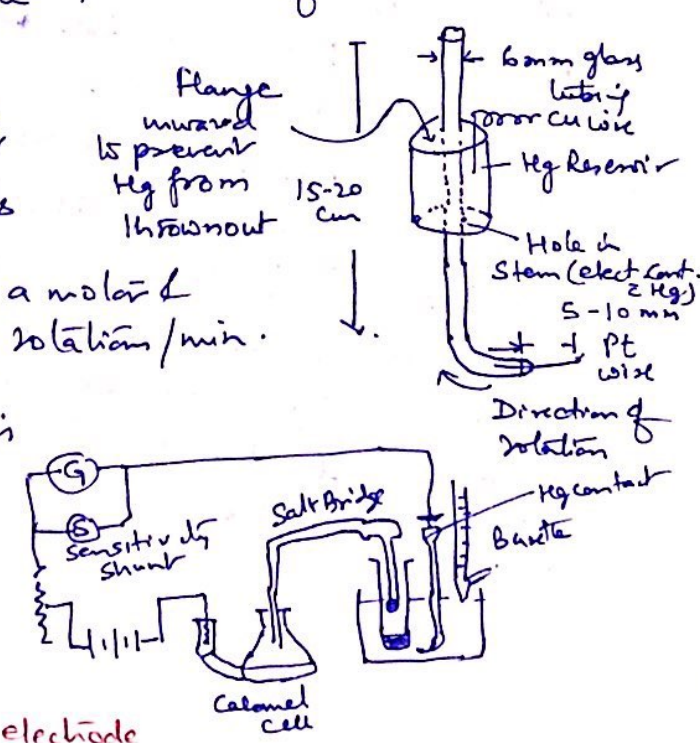 Flange
inward
to prevent
Hg from
thrownout
15-20
cm
6mm glass
tubing
Cu wire
Hg Reservoir
Hole in
Stem (elect. cont.
c̄ Hg)
5-10 mm
Pt
wire
Direction of
rotation
a motor &
rotations/min.
G
S
Sensitivity
shunt
Salt Bridge
Hg contact
Burette
Calomel
cell
electrode